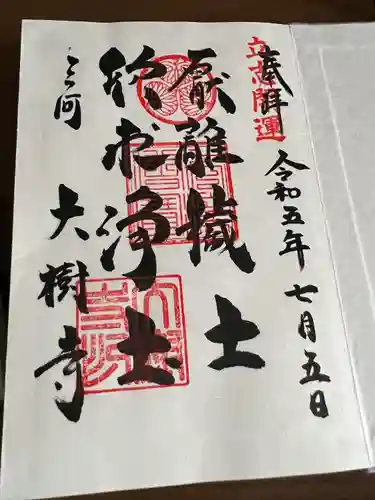 立志開運
奉拝
令和五年七月五日
厭離穢土
欣求浄土
三河
大樹寺